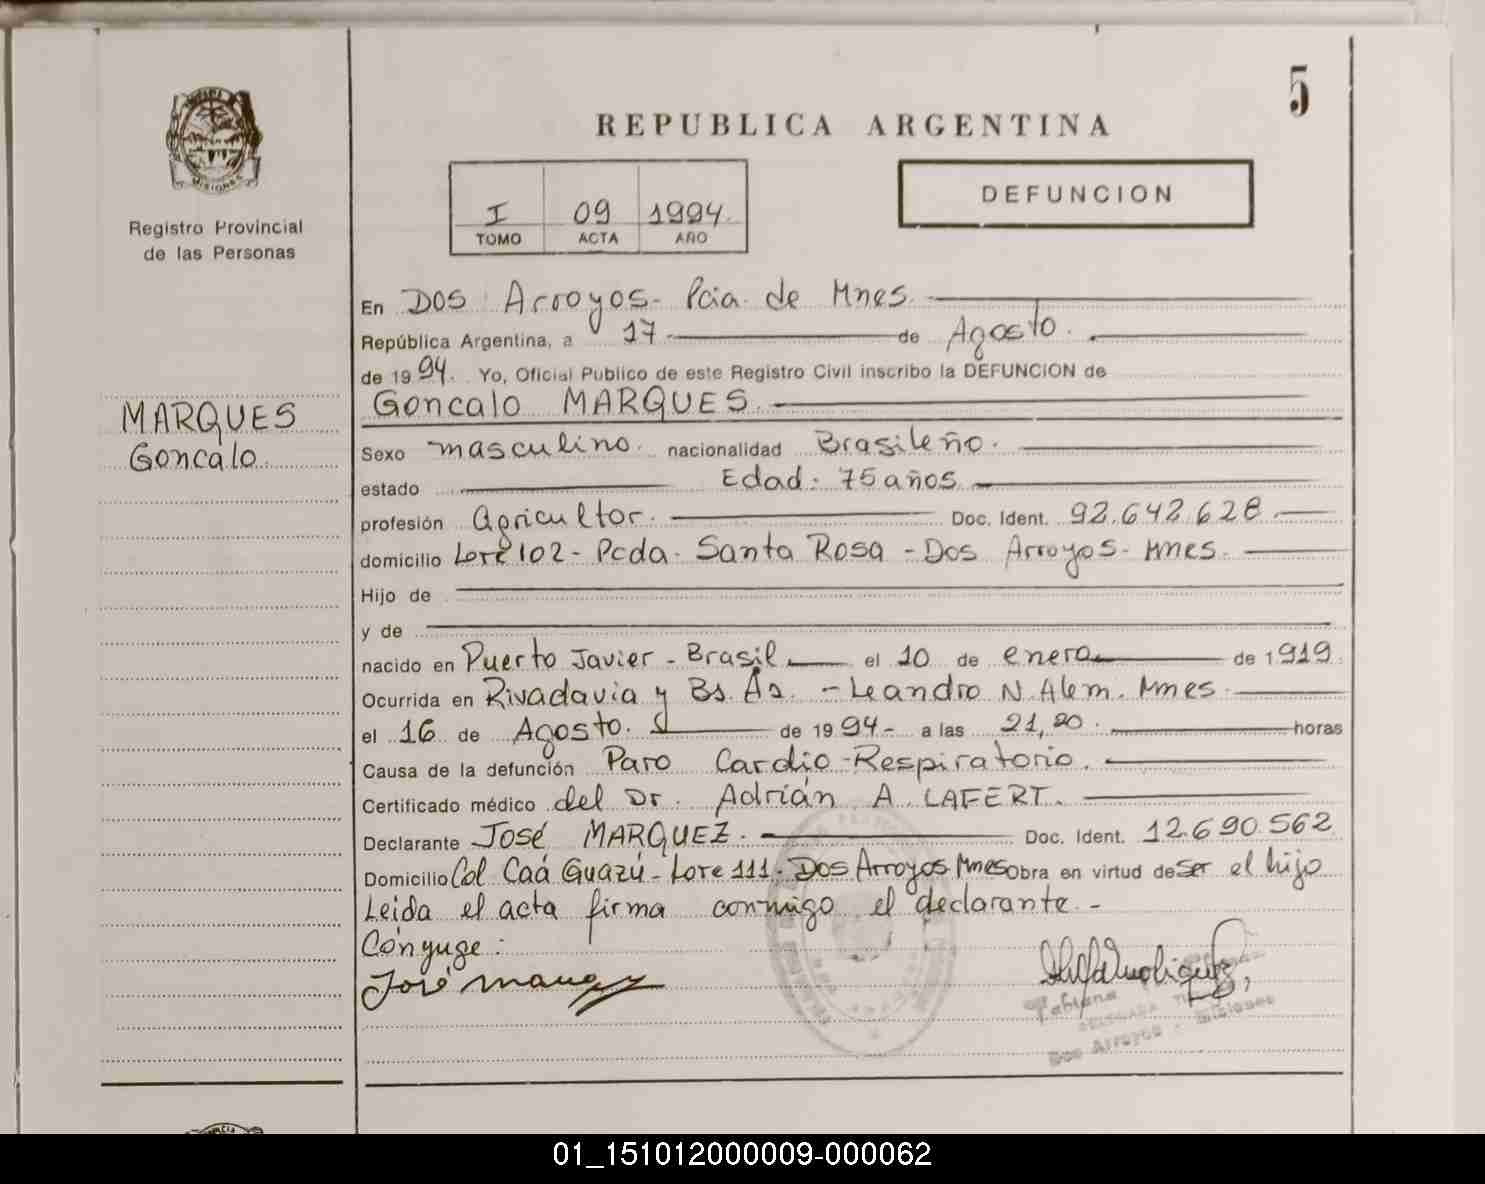 5
REPUBLICA ARGENTINA
MISIONES
Registro Provincial
de las Personas
I 09 1994.
TOMO ACTA AÑO
DEFUNCION
MARQUES
Goncalo
En Dos Arroyos- Pcia. de Mnes.
República Argentina, a 17 de Agosto.
de 1994. Yo, Oficial Publico de este Registro Civil inscribo la DEFUNCION de
Goncalo MARQUES.
Sexo masculino. nacionalidad Brasileño.
estado Edad: 75 años
profesión agricultor. Doc. Ident. 92.642.628.
domicilio Lote 102 - Pcda. Santa Rosa - Dos Arroyos- Mnes.
Hijo de
y de
nacido en Puerto Javier - Brasil el 10 de enero de 1919.
Ocurrida en Rivadavia y Bs. As. - Leandro N. Alem. Mnes.
el 16 de Agosto. de 1994- a las 21,20. horas
Causa de la defunción Paro Cardio-Respiratorio.
Certificado médico del Dr. Adrián A. LAFERT.
Declarante José MARQUEZ. Doc. Ident. 12.690.562
Domicilio Col Caá Guazú - Lote 111- Dos Arroyos Mnes Obra en virtud de ser el hijo
Leida el acta firma conmigo el declarante.-
Cónyuge:
José
Fabiana
Dos Arroyos - Misiones
01_151012000009-000062